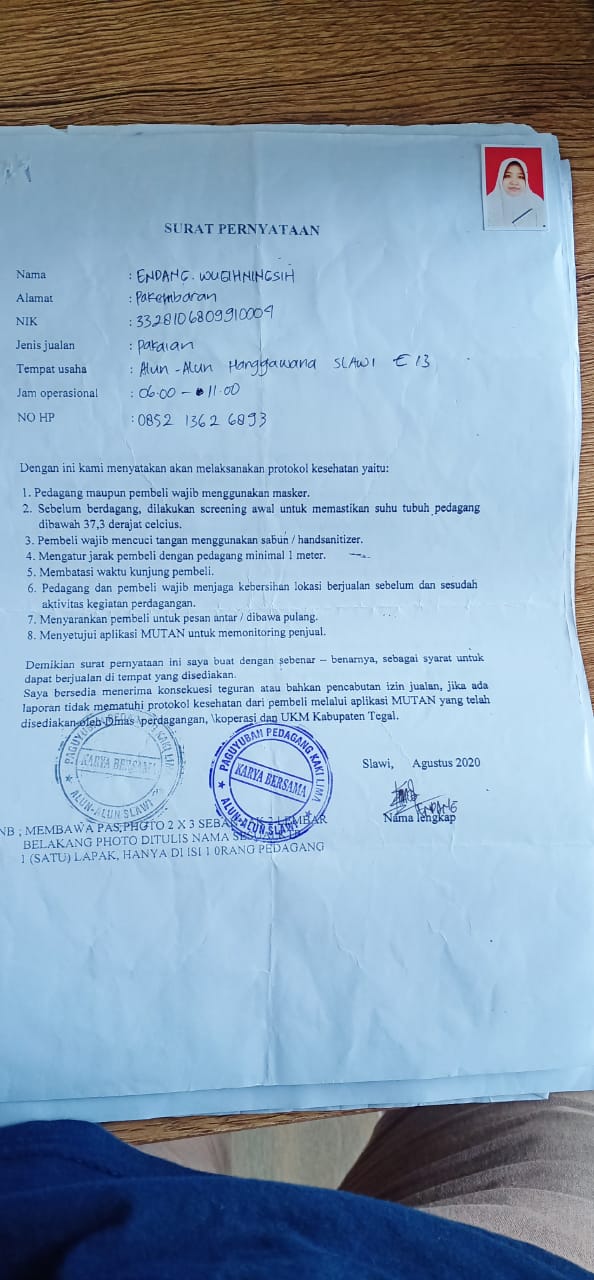 SURAT PERNYATAAN
Nama : ENDANG. WUGIHNINGSIH
Alamat : Pakembaran
NIK : 3328106809910009
Jenis jualan : Pakaian
Tempat usaha : Alun-Alun Hanggawana SLAWI E 13
Jam operasional : 06.00 - 11.00
NO HP : 0852 1362 6893
Dengan ini kami menyatakan akan melaksanakan protokol kesehatan yaitu:
1. Pedagang maupun pembeli wajib menggunakan masker.
2. Sebelum berdagang, dilakukan screening awal untuk memastikan suhu tubuh pedagang
dibawah 37,3 derajat celcius.
3. Pembeli wajib mencuci tangan menggunakan sabun / handsanitizer.
4. Mengatur jarak pembeli dengan pedagang minimal 1 meter.
5. Membatasi waktu kunjung pembeli.
6. Pedagang dan pembeli wajib menjaga kebersihan lokasi berjualan sebelum dan sesudah
aktivitas kegiatan perdagangan.
7. Menyarankan pembeli untuk pesan antar / dibawa pulang.
8. Menyetujui aplikasi MUTAN untuk memonitoring penjual.
Demikian surat pernyataan ini saya buat dengan sebenar – benarnya, sebagai syarat untuk
dapat berjualan di tempat yang disediakan.
Saya bersedia menerima konsekuesi teguran atau bahkan pencabutan izin jualan, jika ada
laporan tidak mematuhi protokol kesehatan dari pembeli melalui aplikasi MUTAN yang telah
disediakan oleh Dinas \perdagangan, \koperasi dan UKM Kabupaten Tegal.
PAGUYUBAN PEDAGANG KAKI LIMA
KARYA BERSAMA
ALUN-ALUN SLAWI
PAGUYUBAN PEDAGANG KAKI LIMA
KARYA BERSAMA
ALUN-ALUN SLAWI
Slawi, Agustus 2020
ENDANG
Nama lengkap
NB ; MEMBAWA PAS PHOTO 2 X 3 LEMBAR
BELAKANG PHOTO DITULIS NAMA
1 (SATU) LAPAK, HANYA DI ISI 1 0RANG PEDAGANG